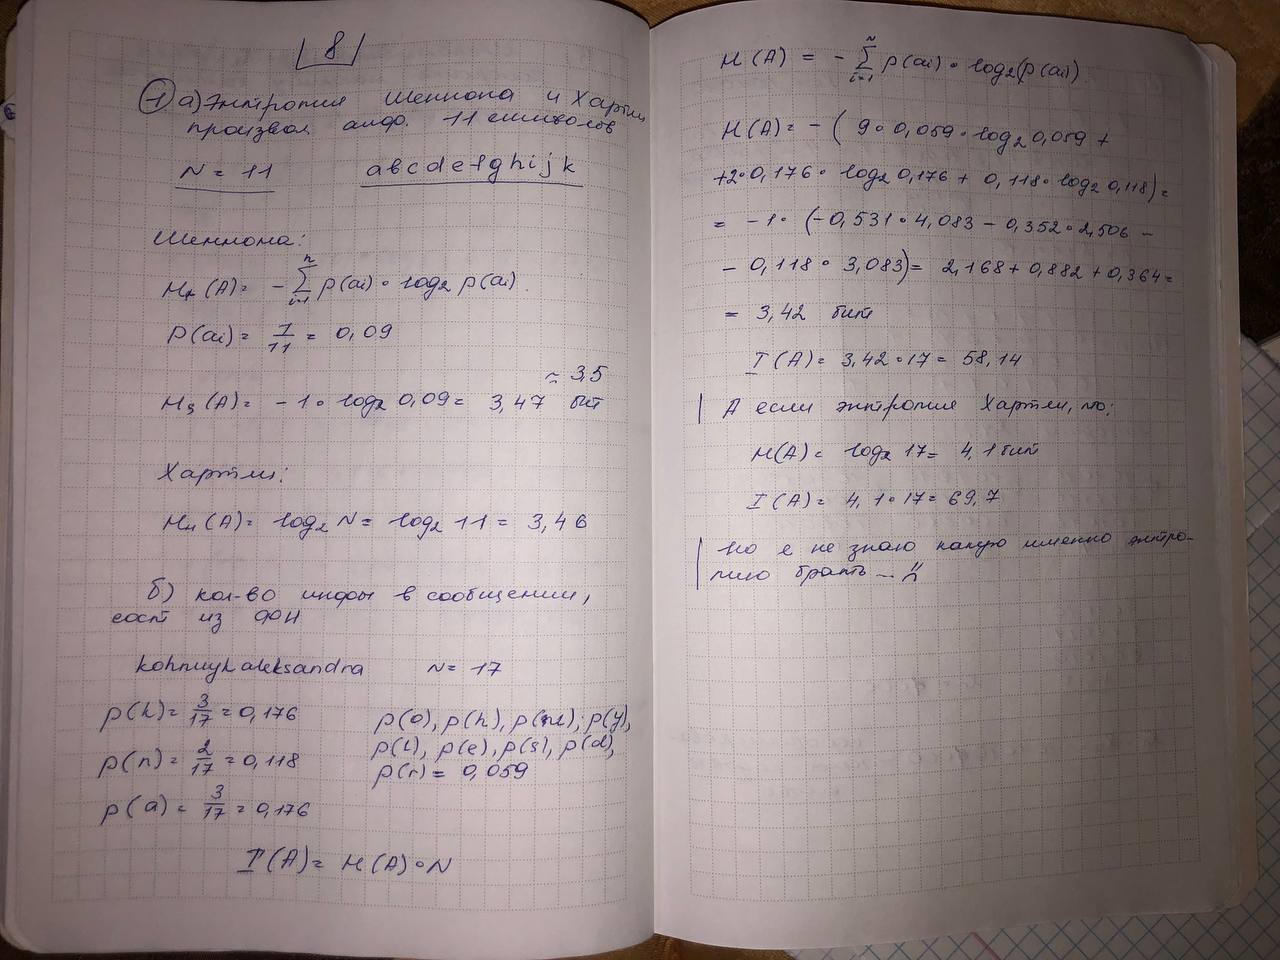 8
1 а) Энтропия Шеннона и Хартли
произвол алф. 11 символов
N = 11
abcdefghijk
Шеннона:
Hₛ(A) = - Σ p(ai) · log₂ p(ai).
n
i=1
P(ai) = 1/11 = 0,09
≈ 3,5
Hₛ(A) = -1 · log₂ 0,09 = 3,47 бит
Хартли:
Hₕ(A) = log₂ N = log₂ 11 = 3,46
б) кол-во инфы в сообщении,
сост из ФОИ
N = 17
p(k) = 3/17 = 0,176
p(n) = 2/17 = 0,118
p(a) = 3/17 = 0,176
p(o), p(h), p(m), p(y),
p(l), p(e), p(s), p(d),
p(r) = 0,059
I(A) = H(A) · N
H(A) = - Σ p(ai) · log₂(p(ai)
i=1
H(A) = - ( 9 · 0,059 · log₂ 0,059 +
+2 · 0,176 · log₂ 0,176 + 0,118 · log₂ 0,118) =
= -1 · (-0,531 · 4,083 - 0,352 · 2,506 -
- 0,118 · 3,083) = 2,168 + 0,882 + 0,364 =
= 3,42 бит
I(A) = 3,42 · 17 = 58,14
А если энтропия Хартли, то:
H(A) = log₂ 17 = 4,1 бит
I(A) = 4,1 · 17 = 69,7
Но я не знаю какую именно энтро-
пию брать ...